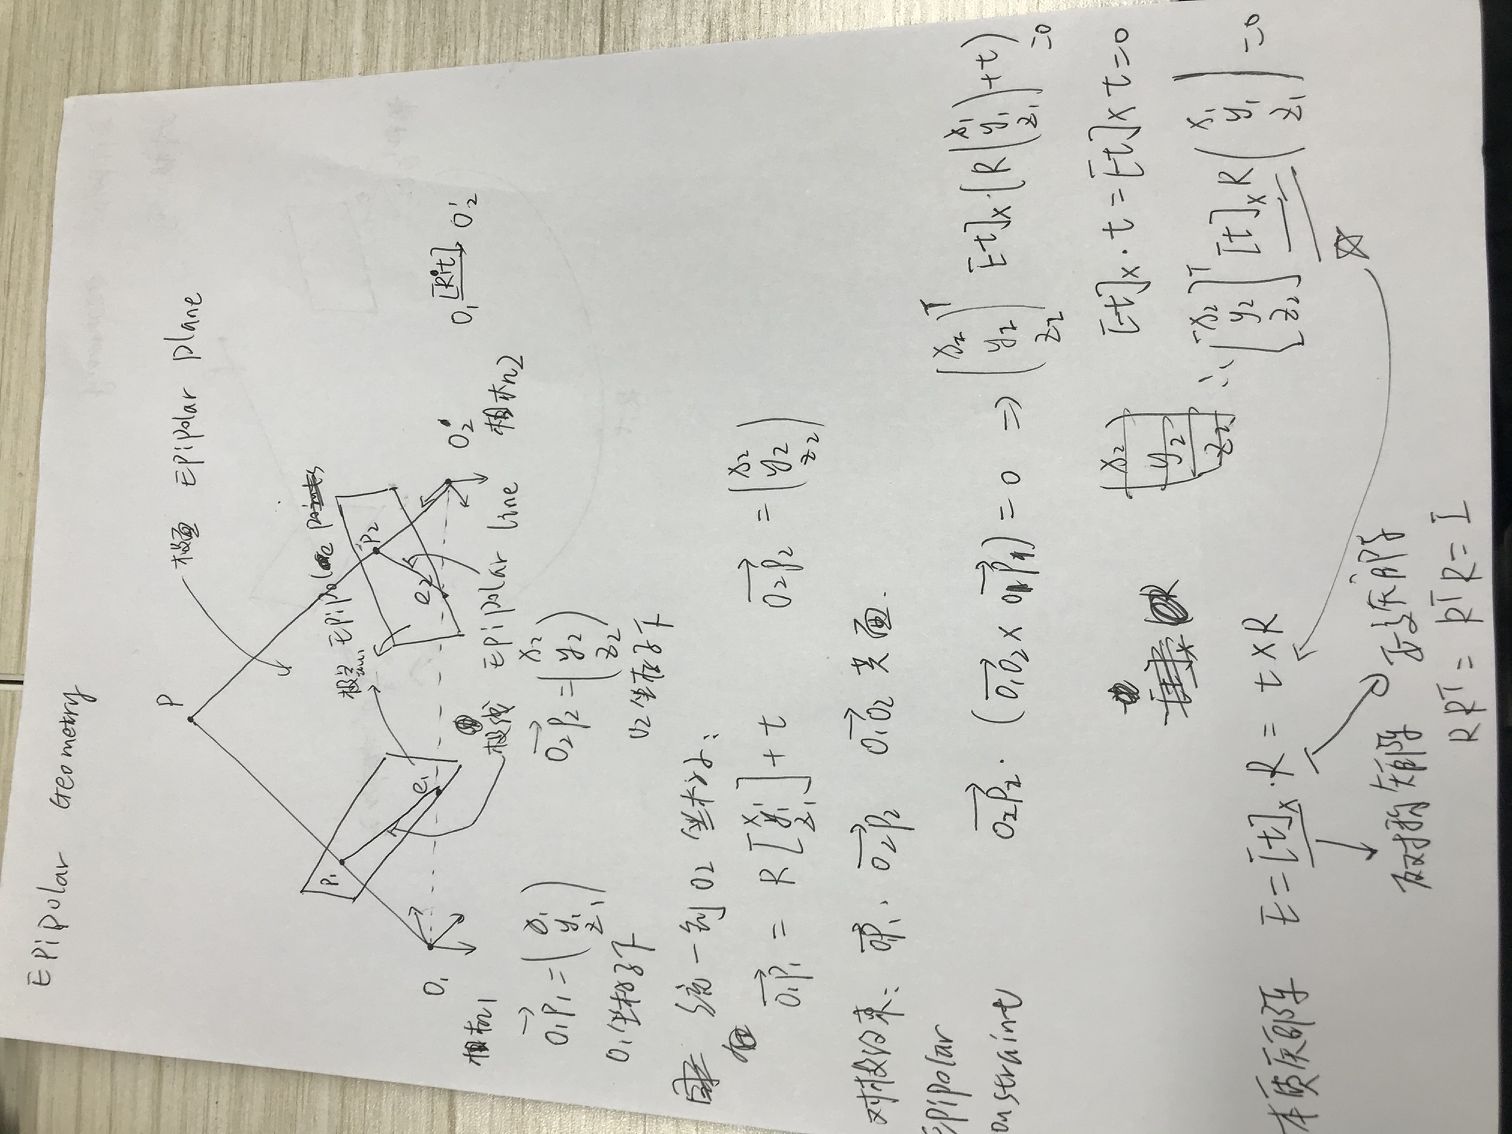 Epipolar Geometry
P
极面 Epipolar Plane
极点 Epipole
P₁
P₂
e₁
e₂
O₁
O₂
O₁ [R t] → O₂'
相机1
极线 Epipolar line
相机2
O₁P₁ = (x₁ y₁ z₁)
O₂P₂ = (x₂ y₂ z₂)
O₁坐标系下
O₂坐标系下
统一到O₂坐标系:
O₁P₁ = R [x₁ y₁ z₁] + t
O₂P₂ = (x₂ y₂ z₂)
对极约束: O₁P₁, O₂P₂ O₁O₂ 共面.
Epipolar
onstraint
O₂P₂ · (O₁O₂ × O₁P₁) = 0 ⇒ (x₂ y₂ z₂)ᵀ [t]ₓ · (R (x₁ y₁ z₁) + t) = 0
[t]ₓ · t = [t] × t = 0
∴ [x₂ y₂ z₂]ᵀ [t]ₓ R (x₁ y₁ z₁) = 0
本质矩阵 E = [t]ₓ · R = t × R
反对称矩阵
正交矩阵
RRᵀ = RᵀR = I